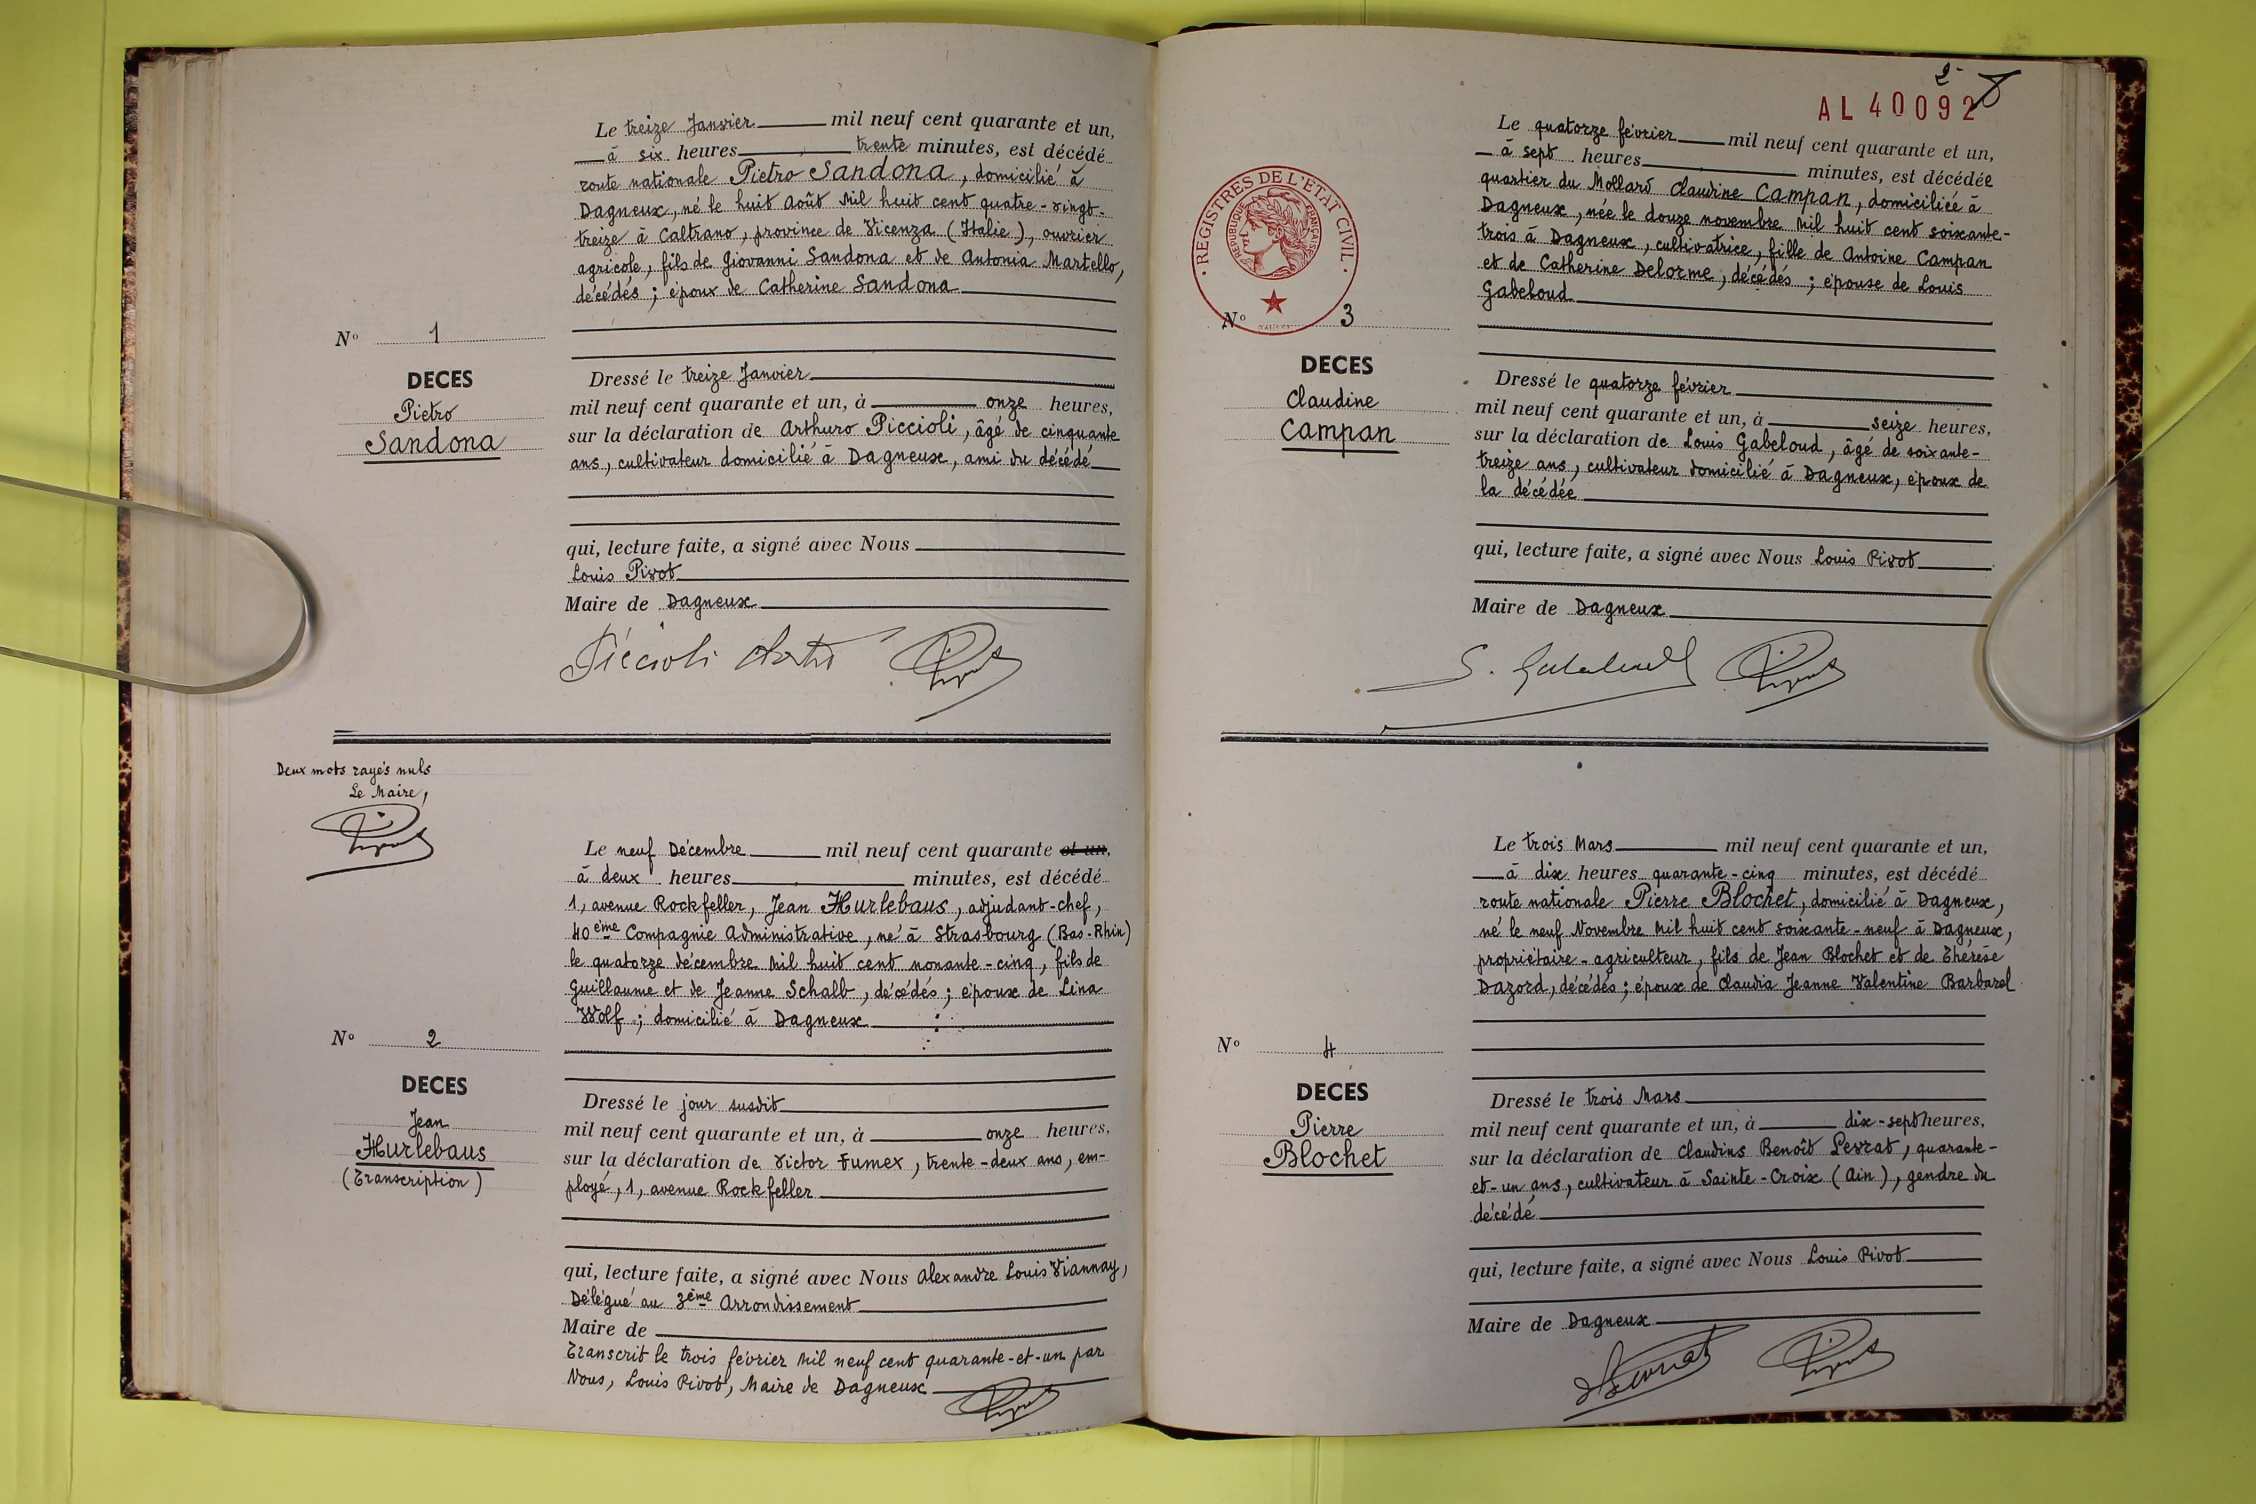 Le treize Janvier mil neuf cent quarante et un,
à six heures trente minutes, est décédé
route nationale Pietro Sandona, domicilié à
Dagneux, né le huit Août Mil huit cent quatre-vingt-
treize à Caltrano, province de Vicenza (Italie), ouvrier
agricole, fils de Giovanni Sandona et de Antonia Martello,
décédés ; époux de Catherine Sandona
N° 1
DECES
Pietro
Sandona
Dressé le treize Janvier
mil neuf cent quarante et un, à onze heures,
sur la déclaration de Arthuro Piccioli, âgé de cinquante
ans, cultivateur domicilié à Dagneux, ami du décédé
qui, lecture faite, a signé avec Nous
Louis Pivot
Maire de Dagneux
Piccioli
Deux mots rayés nuls
Le Maire,
Le neuf Décembre mil neuf cent quarante et un,
à deux heures minutes, est décédé
1, avenue Rockfeller, Jean Hurlebaus, adjudant-chef,
40ème Compagnie Administrative, né à Strasbourg (Bas-Rhin)
le quatorze décembre Mil huit cent nonante-cinq, fils de
Guillaume et de Jeanne Schalb, décédés ; époux de Lina
Wolf ; domicilié à Dagneux
N° 2
DECES
Jean
Hurlebaus
(Transcription)
Dressé le jour susdit
mil neuf cent quarante et un, à onze heures,
sur la déclaration de Victor Fumex, trente-deux ans, em-
ployé, 1, avenue Rockfeller
qui, lecture faite, a signé avec Nous Alexandre Louis Viannay,
Délégué au 3ème Arrondissement
Maire de
Transcrit le trois février Mil neuf cent quarante-et-un par
Nous, Louis Pivot, Maire de Dagneux
2
AL 40092
REGISTRES DE L'ETAT CIVIL
REPUBLIQUE FRANÇAISE
Le quatorze février mil neuf cent quarante et un,
à sept heures minutes, est décédée
quartier du Mollard Claudine Campan, domiciliée à
Dagneux, née le douze novembre Mil huit cent soixante-
trois à Dagneux, cultivatrice, fille de Antoine Campan
et de Catherine Delorme, décédés ; épouse de Louis
Gabeloud
N° 3
DECES
Claudine
Campan
Dressé le quatorze février
mil neuf cent quarante et un, à seize heures,
sur la déclaration de Louis Gabeloud, âgé de soixante-
treize ans, cultivateur domicilié à Dagneux, époux de
la décédée
qui, lecture faite, a signé avec Nous Louis Pivot
Maire de Dagneux
Le trois Mars mil neuf cent quarante et un,
à dix heures quarante-cinq minutes, est décédé
route nationale Pierre Blochet, domicilié à Dagneux,
né le neuf Novembre Mil huit cent soixante-neuf à Dagneux,
propriétaire-agriculteur, fils de Jean Blochet et de Thérèse
Dazord, décédés ; époux de Claudia Jeanne Valentine Barbarel
N° 4
DECES
Pierre
Blochet
Dressé le trois Mars
mil neuf cent quarante et un, à dix-sept heures,
sur la déclaration de Claudius Benoît Levrat, quarante-
et-un ans, cultivateur à Sainte-Croix (Ain), gendre du
décédé
qui, lecture faite, a signé avec Nous Louis Pivot
Maire de Dagneux